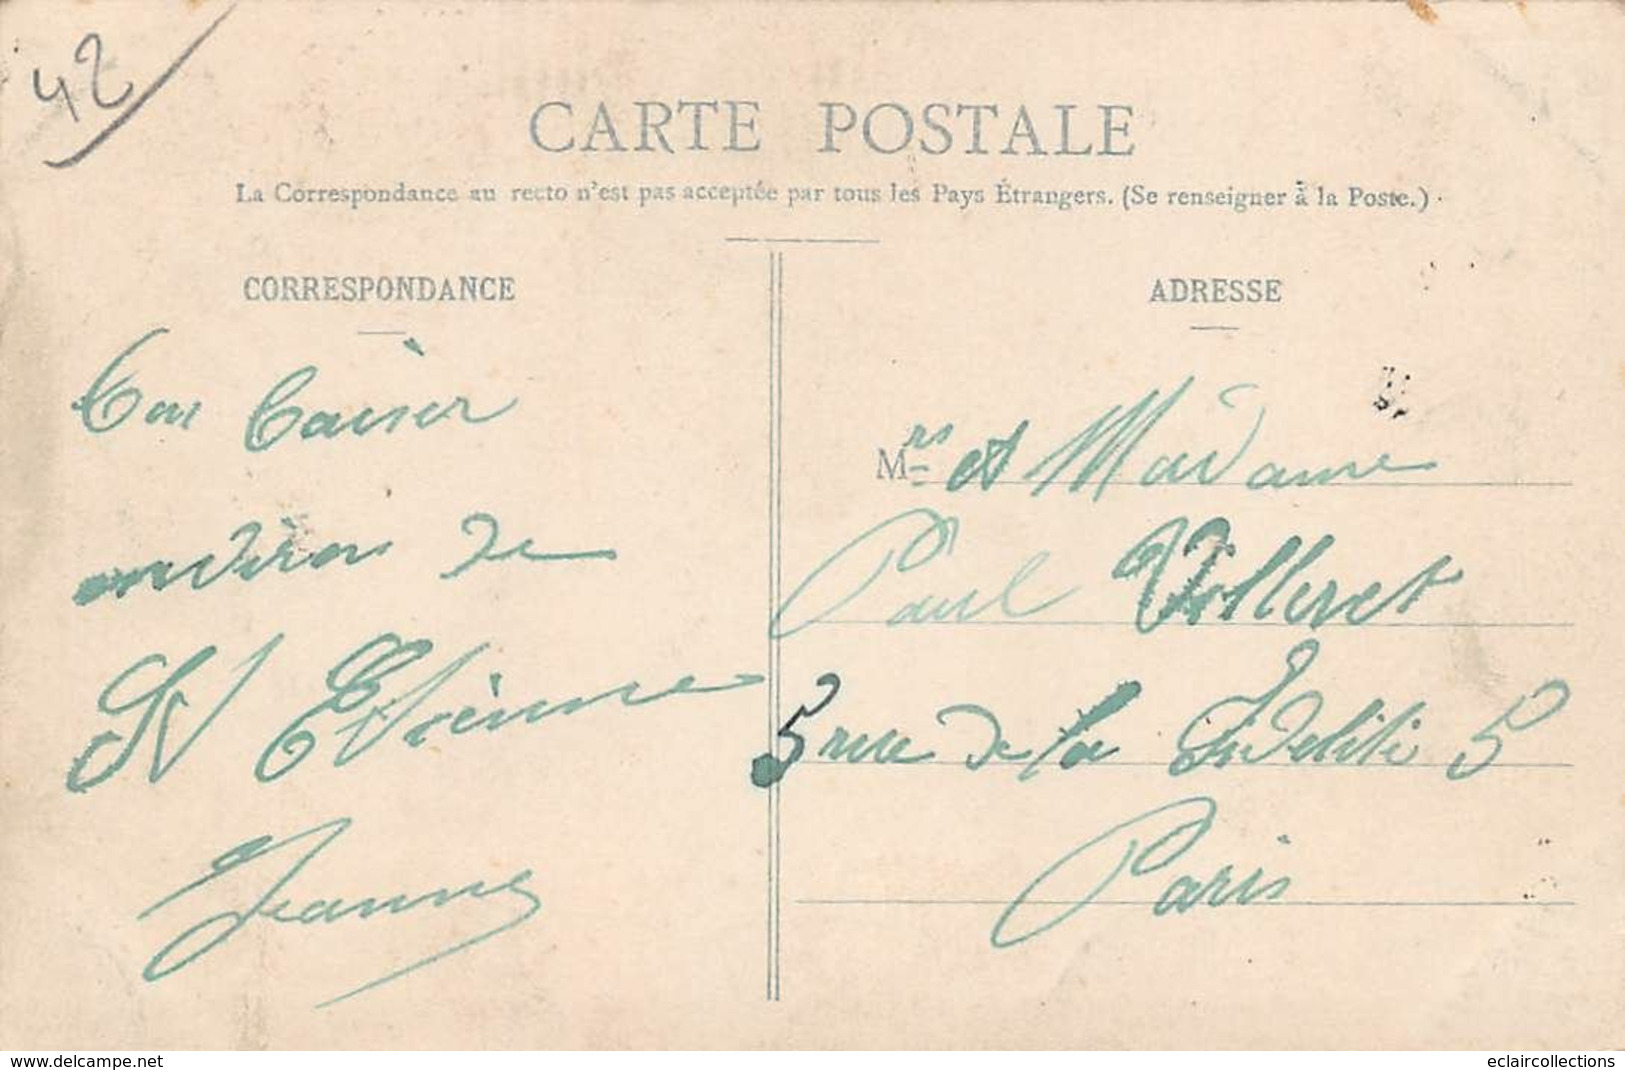 42
CARTE POSTALE
La Correspondance au recto n'est pas acceptée par tous les Pays Étrangers. (Se renseigner à la Poste.)
CORRESPONDANCE
Bon baiser
environ de
St Etienne
Jeanne
ADRESSE
Mrs et Madame
Paul Volleret
5 rue de la Fidelité 5
Paris
www.delcampe.net
eclaircollections